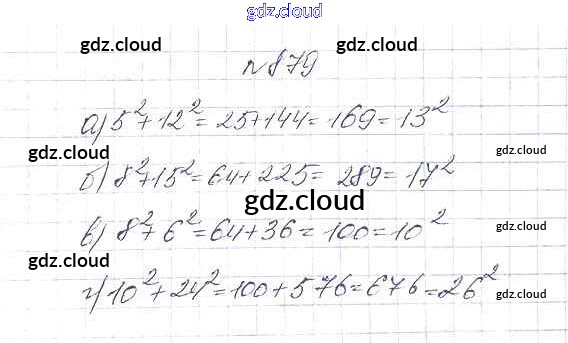 gdz.cloud
gdz.cloud gdz.cloud
№879
а) 5²+12²=25+144=169=13²
gdz.cloud gdz.cloud
б) 8²+15²=64+225=289=17²
gdz.cloud
в) 8²+6²=64+36=100=10²
gdz.cloud
gdz.cloud
г) 10²+24²=100+576=676=26²
gdz.cloud
gdz.cloud